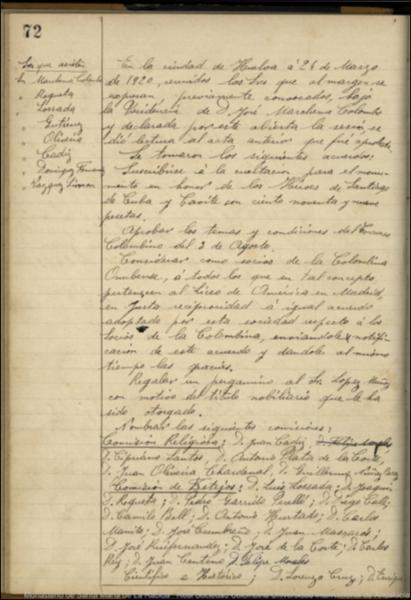 72
Sres que asisten
Sr. Marchena Colombo
" Roqueta
" Losada
" Gutierrez
" Oliveira
" Cadiz
Dominguez Fernandez
Vazquez Limon
En la ciudad de Huelva á 26 de Marzo
de 1920, reunidos los Sres que al margen se
expresan previamente convocados, bajo
la Presidencia de D. José Marchena Colombo
y declarada por este abierta la sesion se
dió lectura al acta anterior que fué aprobada.
Se tomaron los siguientes acuerdos:
Suscribirse á la cuestacion para el monu-
mento en honor de los Héroes de Santiago
de Cuba y Cavite con ciento noventa y nueve
pesetas.
Aprobar los temas y condiciones del Certamen
Colombino del 3 de Agosto.
Considerar como socios de la Colombina
Onubense, á todos los que en tal concepto
pertenezcan al Liceo de América en Madrid,
en justa reciprocidad á igual acuerdo
adoptado por esta sociedad respecto á los
socios de la Colombina, enviandole notifi-
cación de este acuerdo y dandole al mismo
tiempo las gracias.
Regalar un pergamino al Sr. Lopez Muñoz
con motivo del título nobiliario que le ha
sido otorgado.
Nombrar las siguientes comisiones:
Comisión Religiosa; D. Juan Cadiz,
D. Cipriano Santos, D. Antonio Plata de la Corte,
D. Juan Oliveira Chardenal, D. Guillermo
Comisión de Festejos; D. Luis Losada; D. Joaquin
Roqueta; D. Pedro Garrido Perelló; D. Diego
D. Camilo Bell; D. Antonio Hurtado; D. Carlos
D. José Cumbreño; D. Juan Mascaros;
D. José Ruifernandez; D. José de la Corte; D. Carlos
Rey; D. Juan Centeno D. Felipe Morales
Cientifico é Historico; D. Lorenzo Cruz; D. Enrique